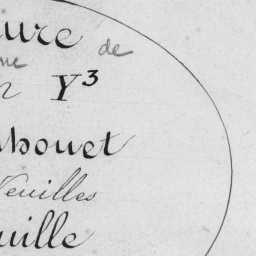 ure de
ne
n Y³
houet
feuilles
uille